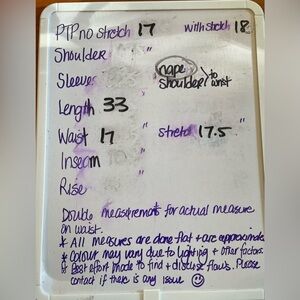 PTP no stretch 17 with stretch 18
Shoulder "
Sleeves nape shoulder } to wrist
Length 33 "
Waist 17 " stretch 17.5 "
Inseam "
Rise "
Double measurements for actual measure
on waist.
* All measures are done flat + are approximate
* Colour may vary due to lighting + other factors.
* Best effort made to find + disclose flaws. Please
contact if there is any issue ☺